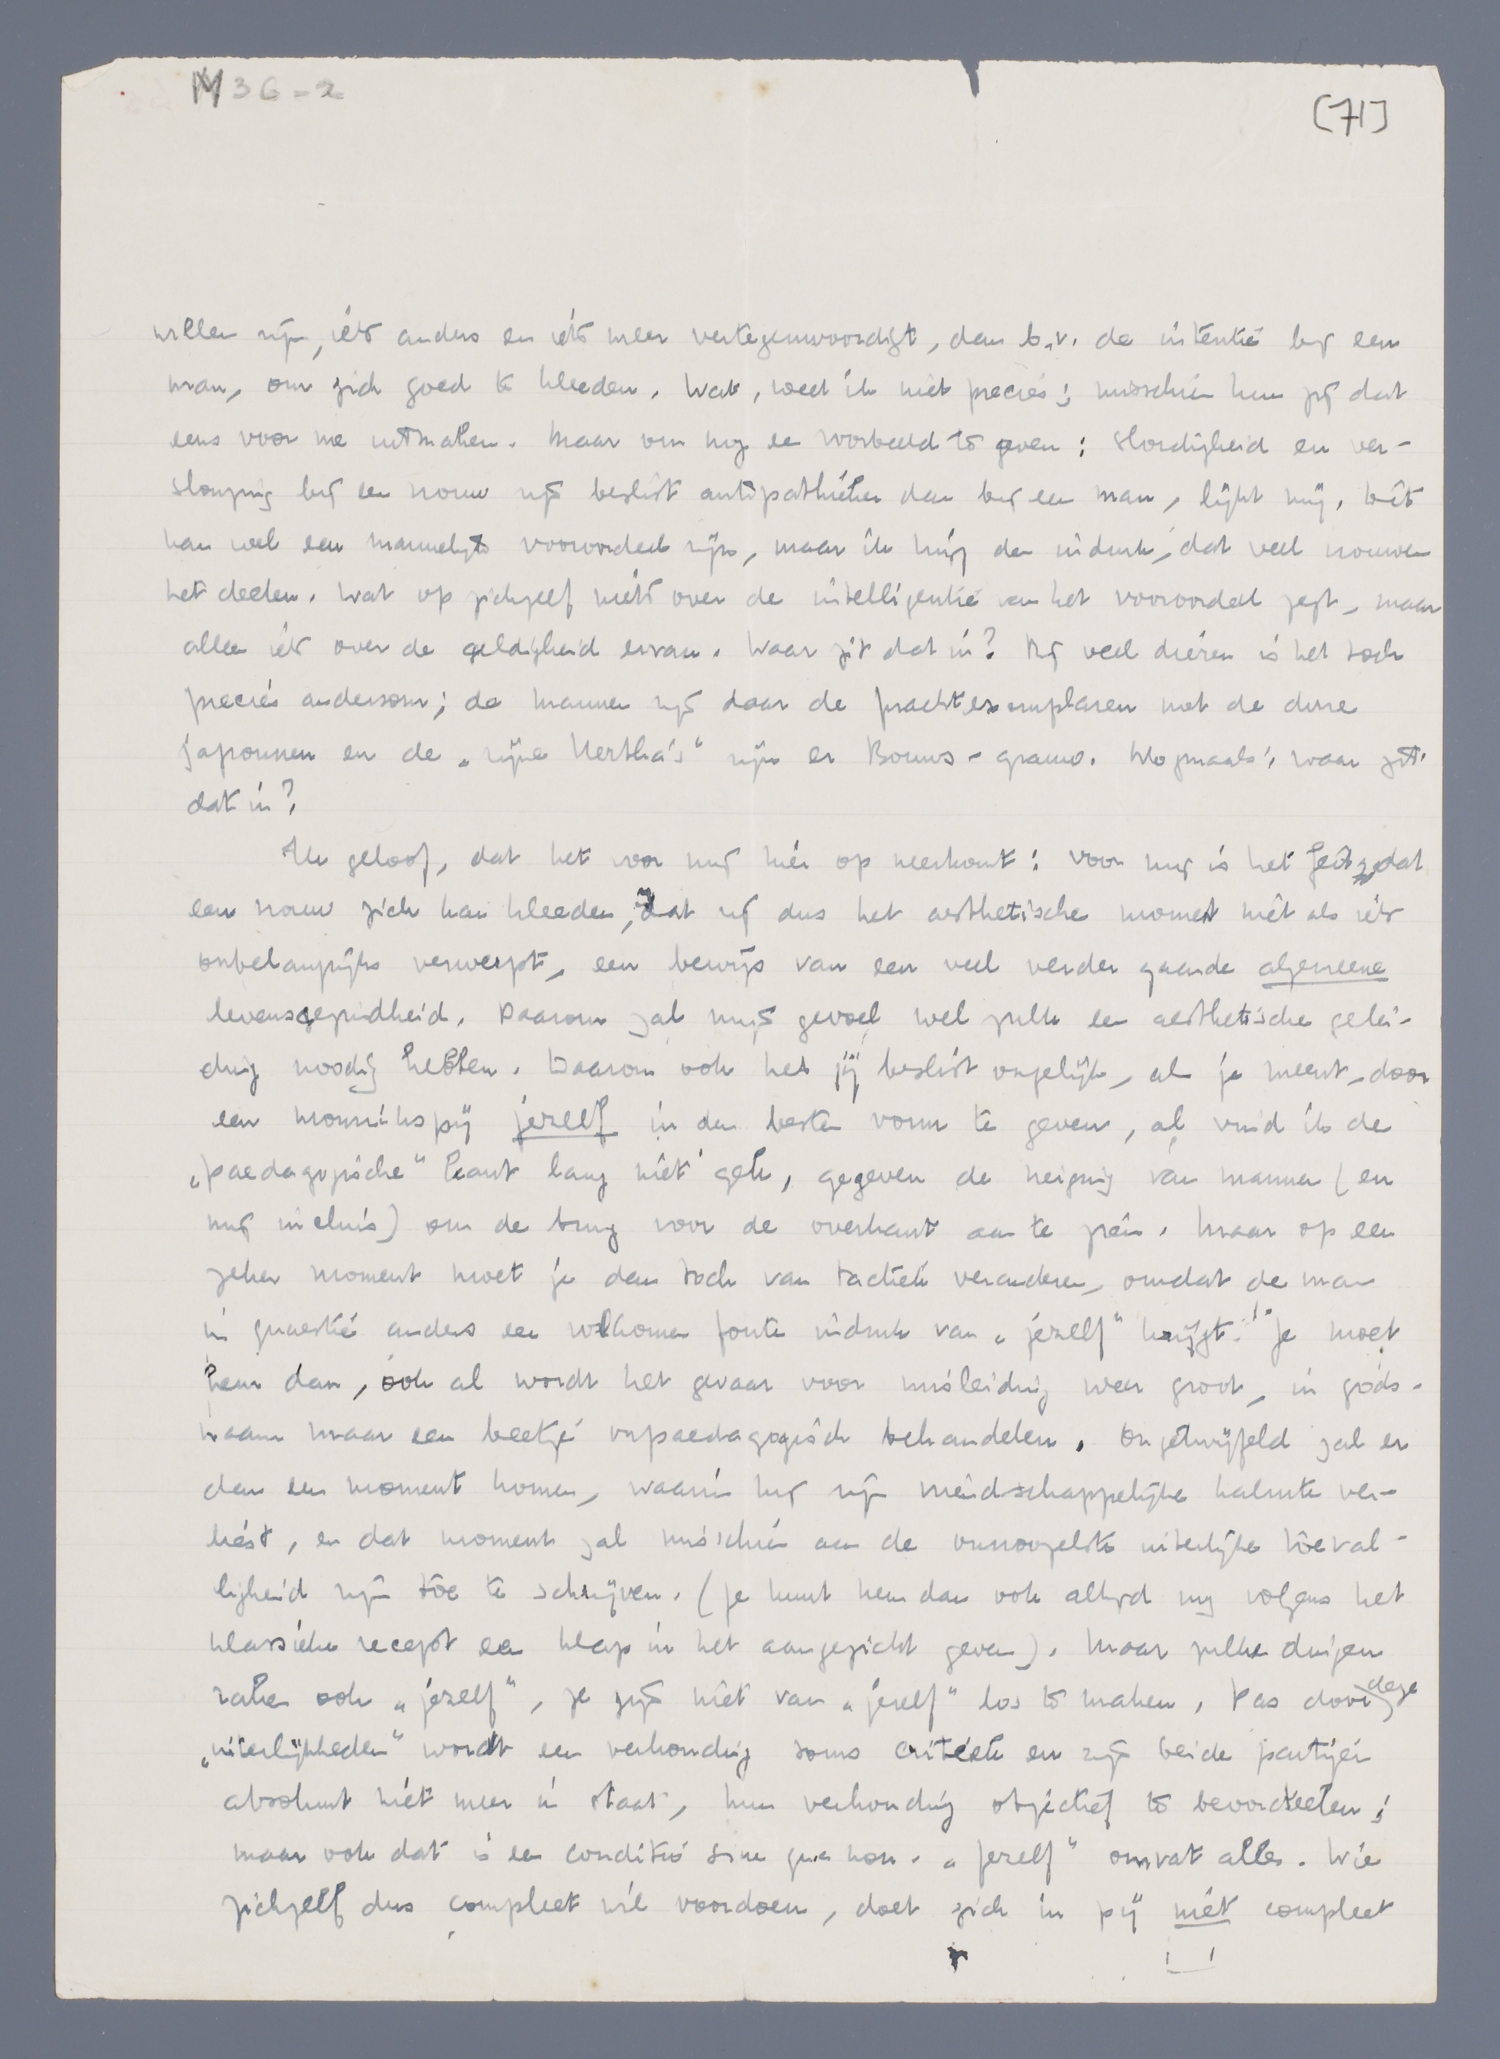 M36-2
[71]
willen zijn, iets anders en iets meer vertegenwoordigt, dan b.v. de intentie bij een
man, om zich goed te kleeden. Wat, weet ik niet precies; misschien kun jij dat
eens voor me uitmaken. Maar om nog een voorbeeld te geven: slordigheid en ver-
slonzing bij een vrouw zijn beslist antipathieker dan bij een man, lijkt mij. Dit
kan wel een mannelijk vooroordeel zijn, maar ik krijg den indruk, dat veel vrouwen
het deelen. Wat op zichzelf niets over de intelligentie van het vooroordeel zegt, maar
alleen iets over de geldigheid ervan. Waar zit dat in? Bij veel dieren is het toch
precies andersom; de mannen zijn daar de prachtexemplaren met de dure
japonnen en de „zijne Hertha's" zijn er Bouws-grauw. Nogmaals: waar zit
dat in?
Ik geloof, dat het voor mij hier op neerkomt: voor mij is het feit, dat
een vrouw zich kan kleeden, dat zij dus het aesthetische moment niet als iets
onbelangrijks verwerpt, een bewijs van een veel verder gaande algemeene
levensgezindheid. Daarom zal mijn gevoel wel zulk een aesthetische gelei-
ding noodig hebben. Daarom ook heb jij beslist ongelijk, als je meent, door
een monnikspij jezelf in den besten vorm te geven, al vind ik de
„paedagogische" kant lang niet gek, gegeven de neiging van mannen (en
mij incluis) om de brug voor de overkant aan te zien. Maar op een
zeker moment moet je dan toch van tactiek veranderen, omdat de man
in quaestie anders een volkomen foute indruk van „jezelf" krijgt! Je moet
hem dan, ook al wordt het gevaar voor misleiding weer groot, in gods-
naam maar een beetje onpaedagogisch behandelen. Ongetwijfeld zal er
dan een moment komen, waarin hij zijn vriendschappelijke kalmte ver-
liest, en dat moment zal misschien aan de onnoozelste uiterlijke toeval-
ligheid zijn toe te schrijven. (Je kunt hem dan ook altijd nog volgens het
klassieke recept een klap in het aangezicht geven). Maar zulke dingen
raken ook „jezelf", ze zijn niet van „jezelf" los te maken. Pas door deze
„uiterlijkheden" wordt een verhouding soms critiek en zijn beide partijen
absoluut niet meer in staat, hun verhouding objectief te beoordeelen;
maar ook dat is een conditio sine qua non. „Jezelf" omvat alles. Wie
zichzelf dus compleet wil voordoen, doet zich in pij niet compleet